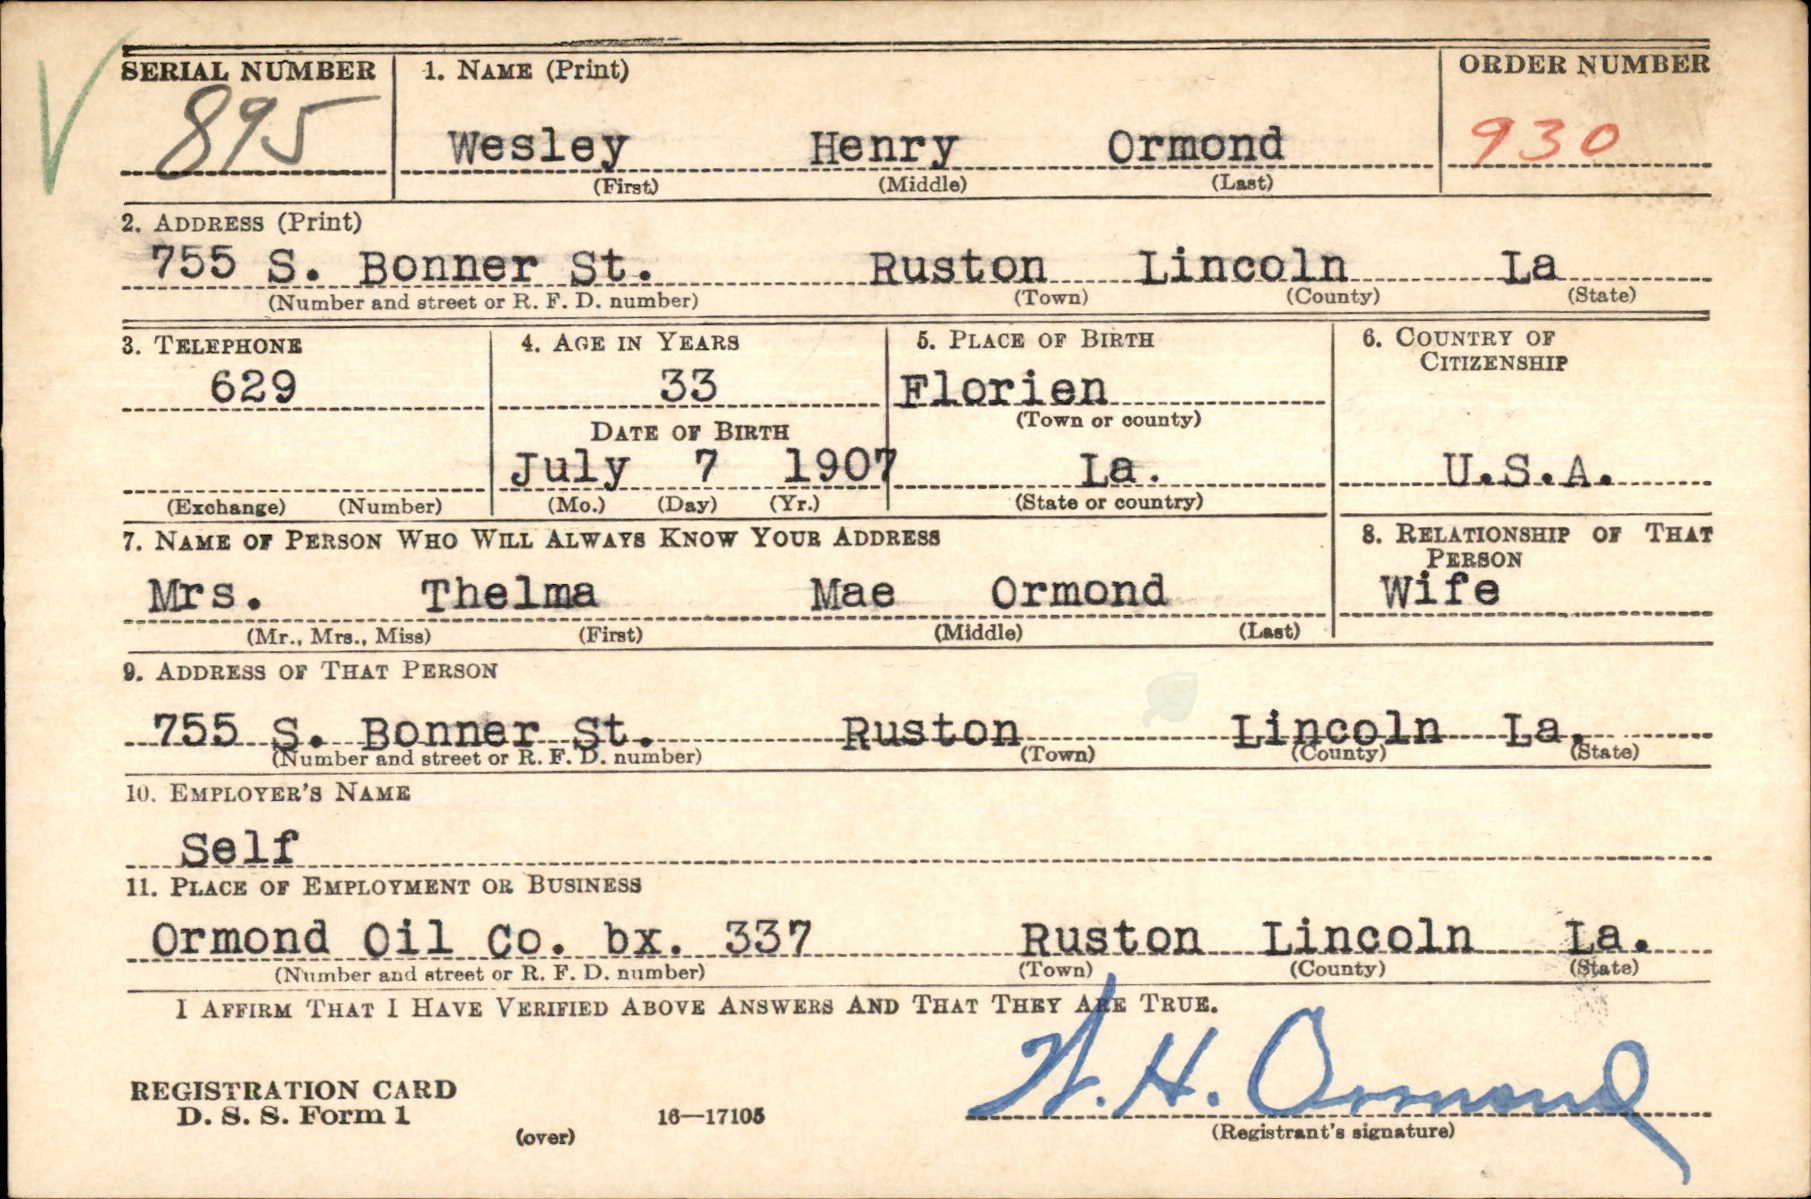 SERIAL NUMBER 1. NAME (Print) ORDER NUMBER
895 Wesley Henry Ormond 930
(First) (Middle) (Last)
2. ADDRESS (Print)
755 S. Bonner St. Ruston Lincoln La
(Number and street or R. F. D. number) (Town) (County) (State)
3. TELEPHONE 4. AGE IN YEARS 5. PLACE OF BIRTH 6. COUNTRY OF
CITIZENSHIP
629 33 Florien
(Town or county)
DATE OF BIRTH
July 7 1907 La. U.S.A.
(Exchange) (Number) (Mo.) (Day) (Yr.) (State or country)
7. NAME OF PERSON WHO WILL ALWAYS KNOW YOUR ADDRESS 8. RELATIONSHIP OF THAT
PERSON
Mrs. Thelma Mae Ormond Wife
(Mr., Mrs., Miss) (First) (Middle) (Last)
9. ADDRESS OF THAT PERSON
755 S. Bonner St. Ruston Lincoln La.
(Number and street or R. F. D. number) (Town) (County) (State)
10. EMPLOYER'S NAME
Self
11. PLACE OF EMPLOYMENT OR BUSINESS
Ormond Oil Co. bx. 337 Ruston Lincoln La.
(Number and street or R. F. D. number) (Town) (County) (State)
I AFFIRM THAT I HAVE VERIFIED ABOVE ANSWERS AND THAT THEY ARE TRUE.
W. H. Ormond
REGISTRATION CARD
D. S. S. Form 1 16—17105
(over) (Registrant's signature)